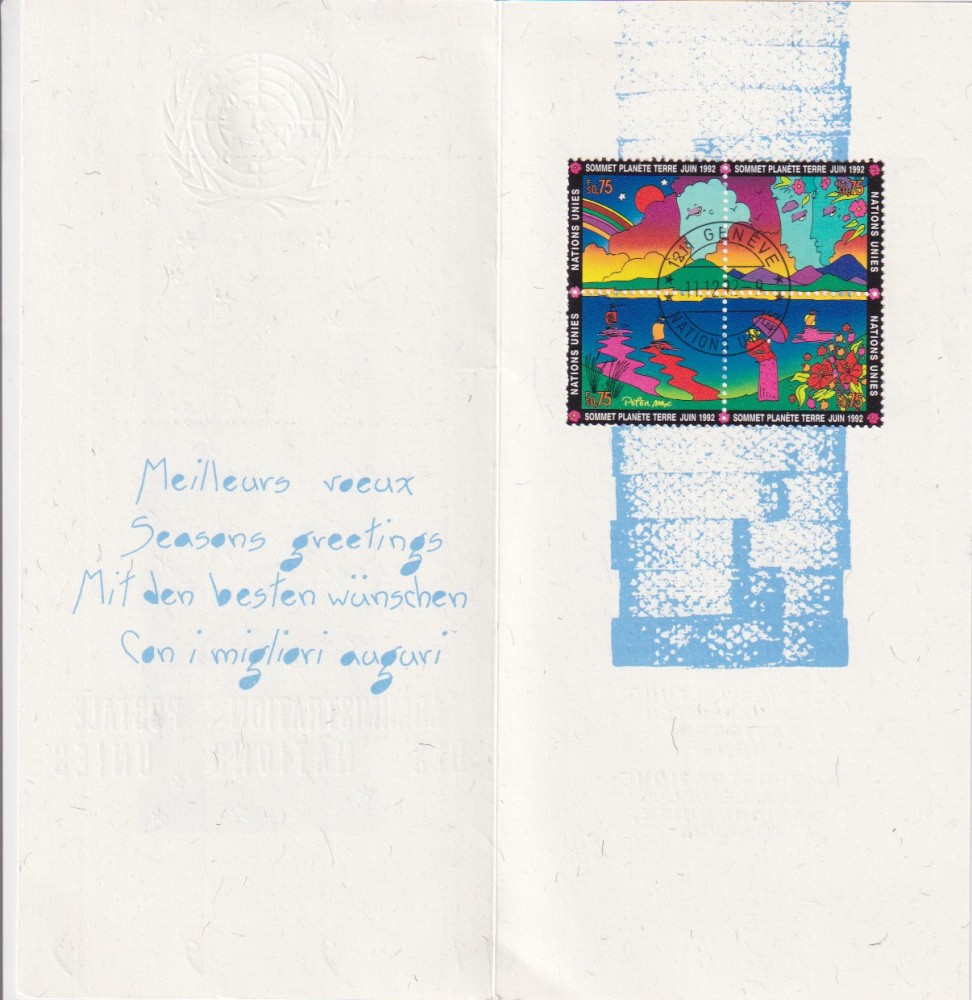 Meilleurs voeux
Seasons greetings
Mit den besten wünschen
Con i migliori auguri
SOMMET PLANÈTE TERRE JUIN 1992
SOMMET PLANÈTE TERRE JUIN 1992
F.S 0,75
F.S 0,75
NATIONS UNIES
NATIONS UNIES
1211 GENÈVE
11.12.92-9
NATIONS UNIES
NATIONS UNIES
NATIONS UNIES
F.S 0,75
Peter Max
F.S 0,75
SOMMET PLANÈTE TERRE JUIN 1992
SOMMET PLANÈTE TERRE JUIN 1992
ADMINISTRATION POSTALE
DES NATIONS UNIES